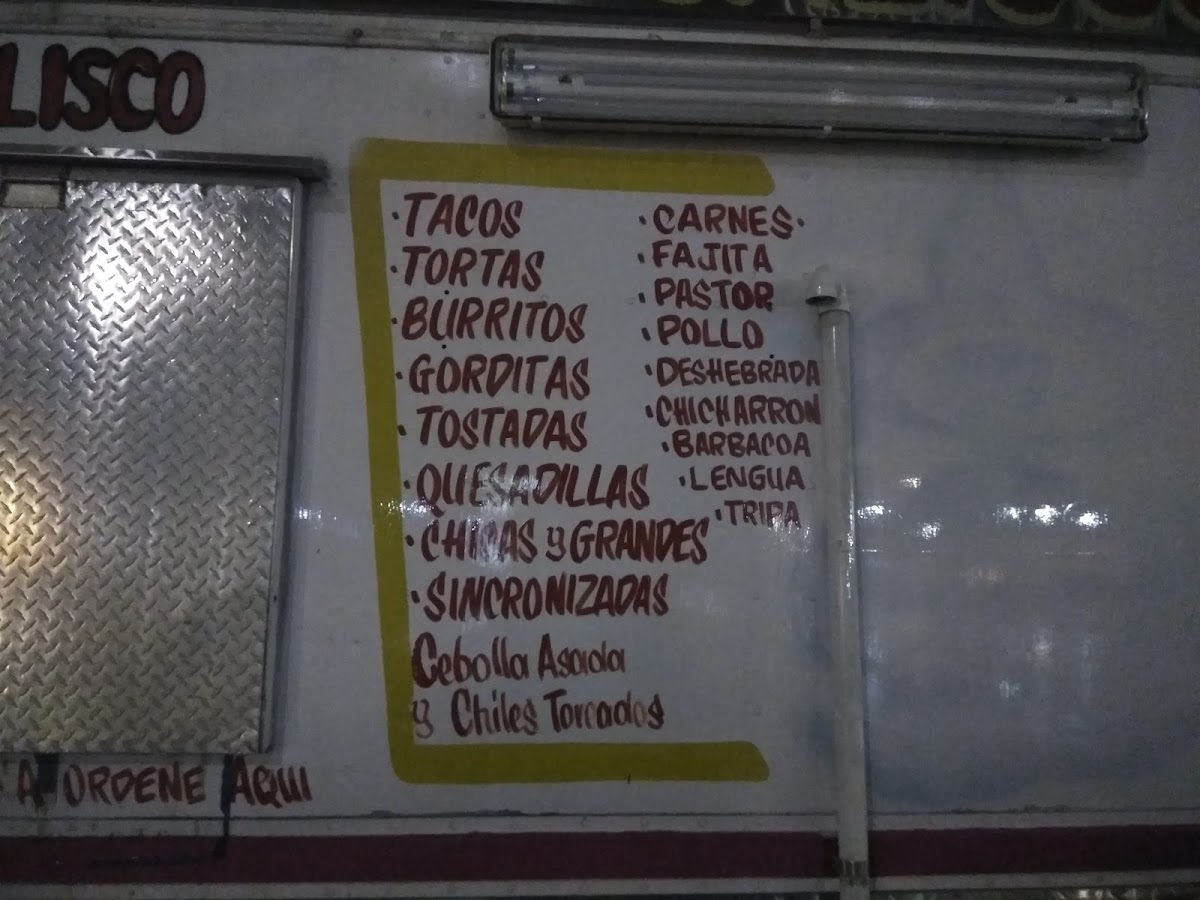 LISCO
·TACOS
·TORTAS
·BURRITOS
·GORDITAS
·TOSTADAS
·QUESADILLAS
·CHICAS y GRANDES
·SINCRONIZADAS
Cebolla Asada
y Chiles Toreados
·CARNES·
·FAJITA
·PASTOR
·POLLO
·DESHEBRADA
·CHICHARRON
·BARBACOA
·LENGUA
·TRIPA
A ORDENE AQUI